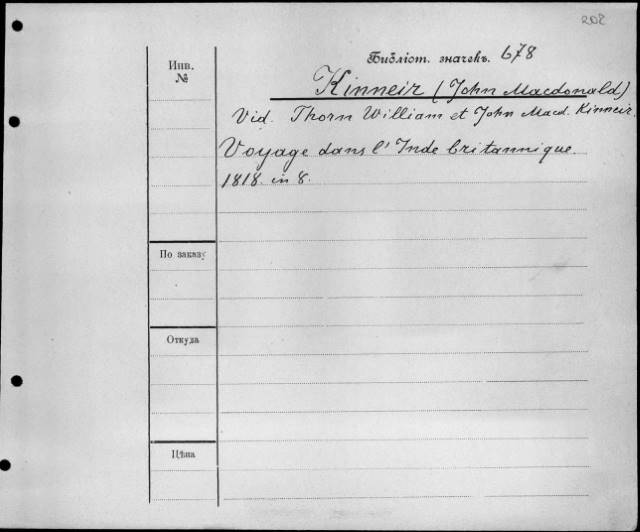 202
Инв.
№
Библіот. значекъ. 678
Kinneir (John Macdonald)
Vid. Thorn William et John Macd. Kinneir.
Voyage dans l'Inde britannique.
1818. in 8.
По заказу
Откуда
Цѣна